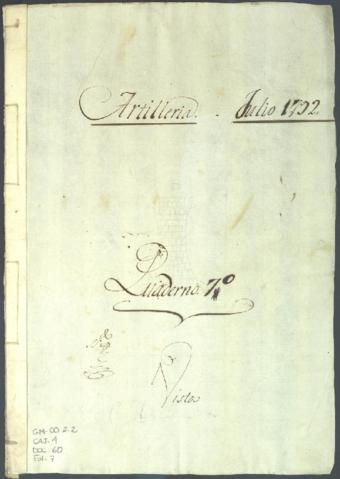 Artilleria. . Julio 1792.
Quaderno. 7º
Vistos
GM-00 2.2
CAJ. 1
DOC. 60
Fol. 7